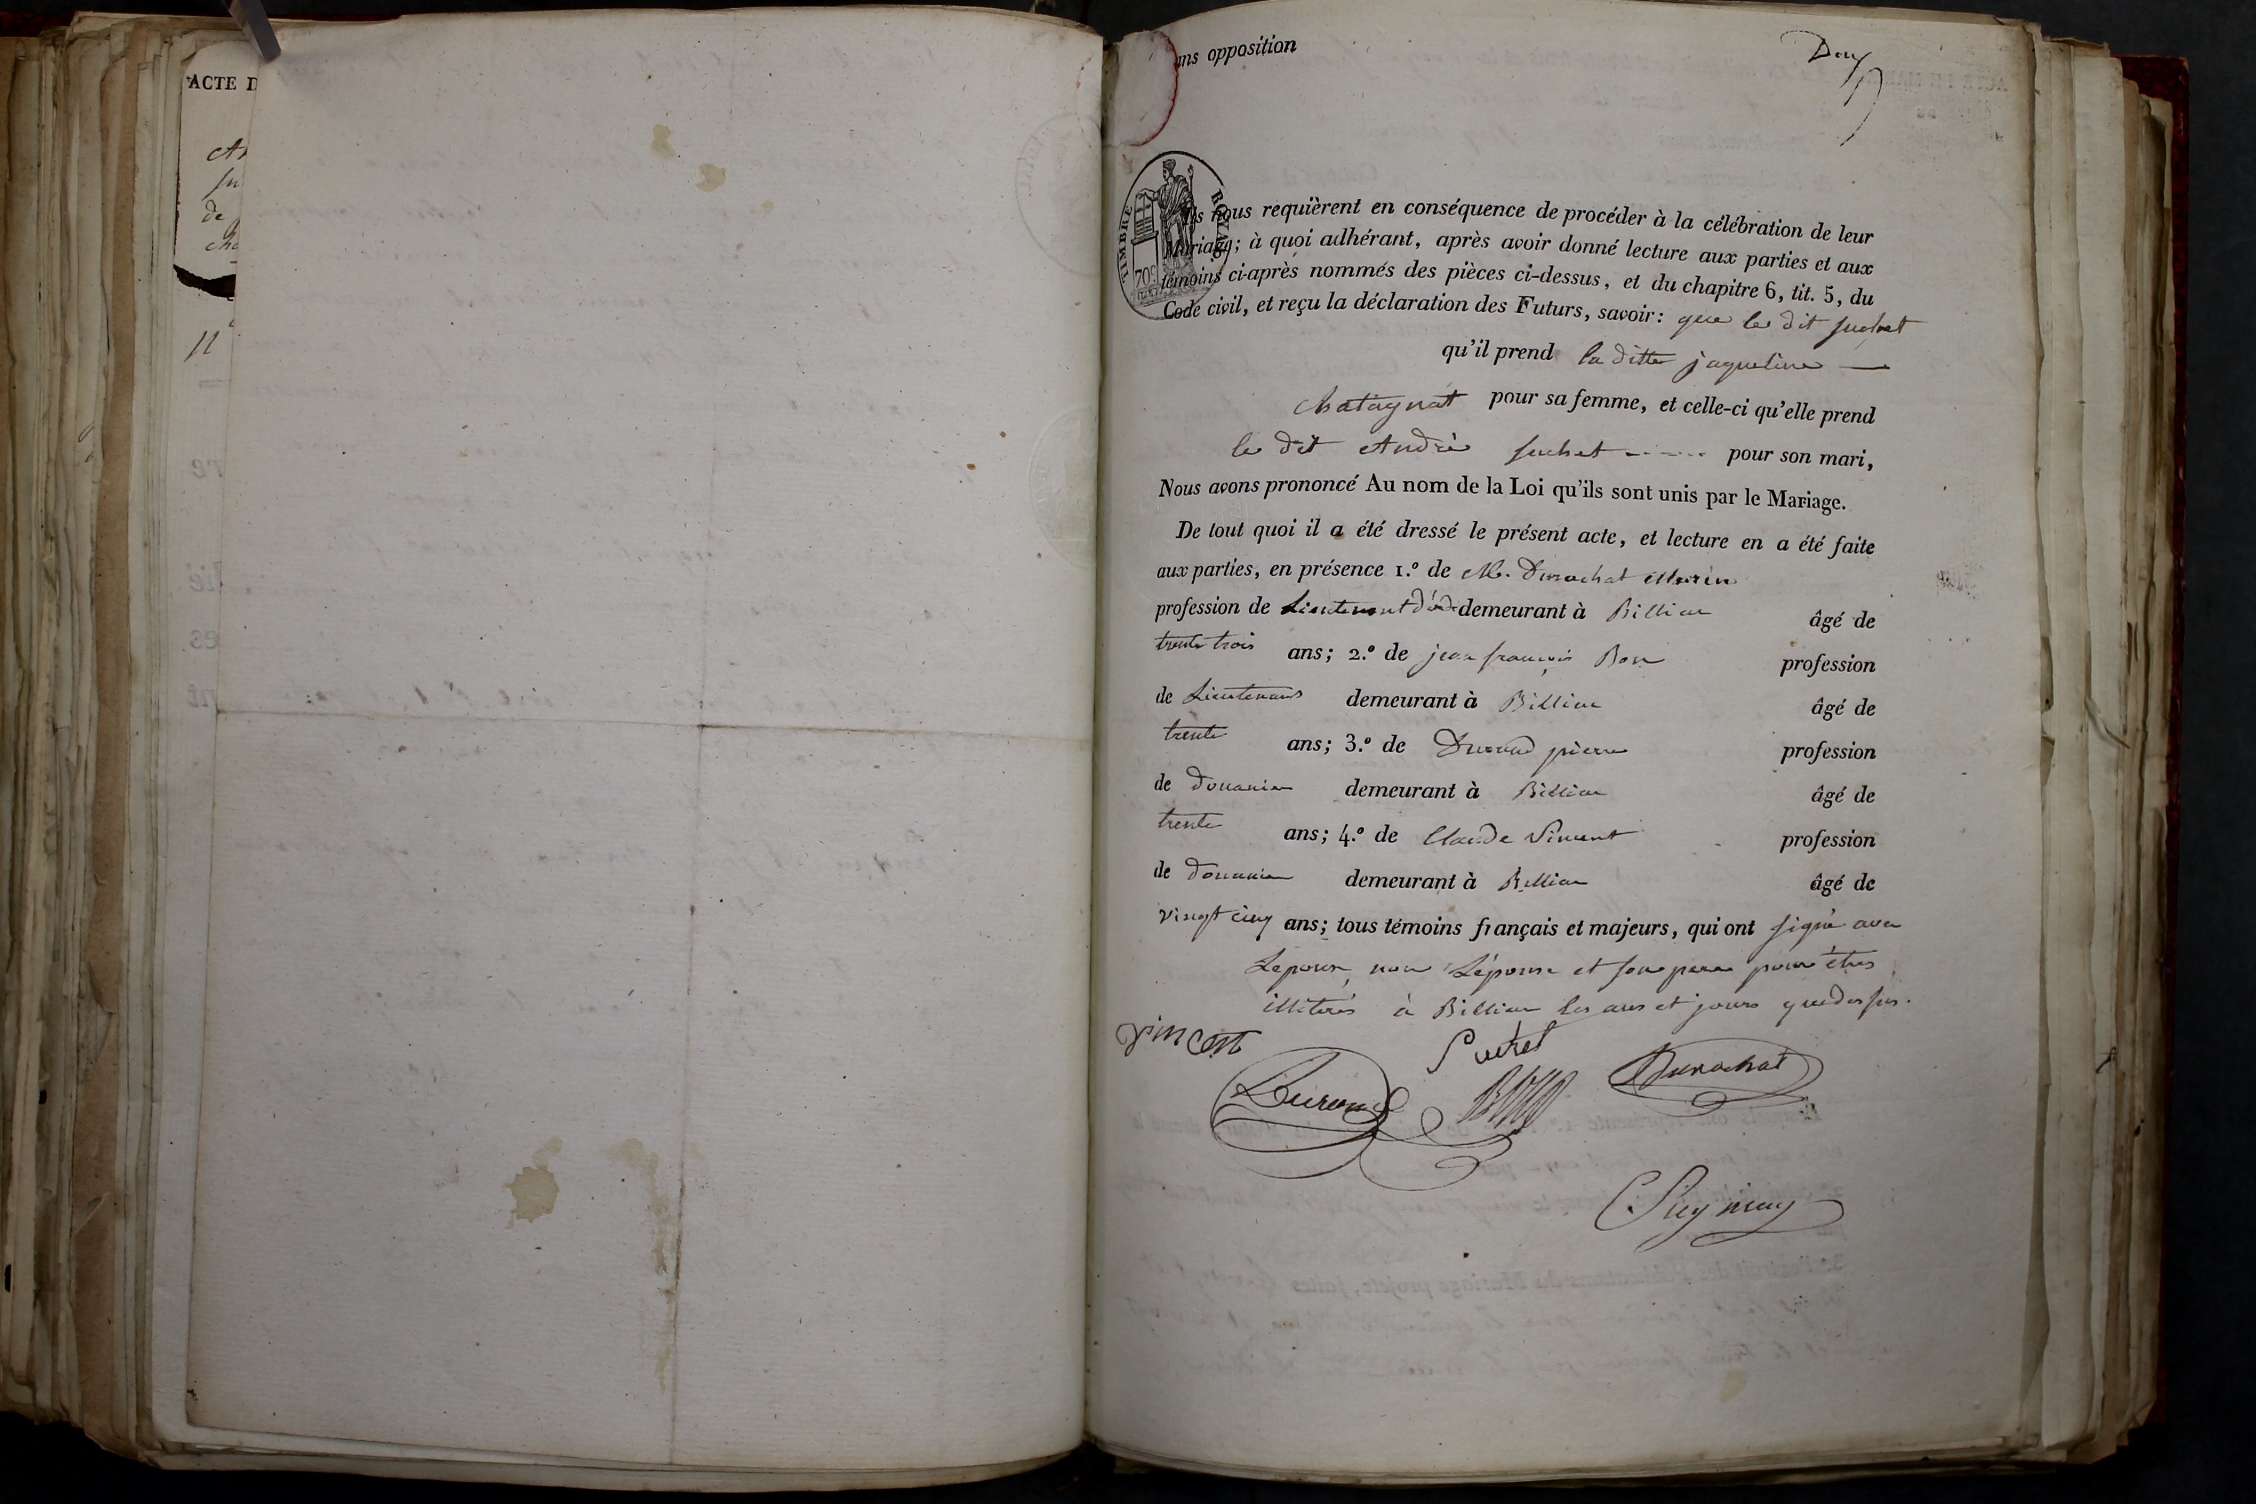 ACTE D
de
11
ans opposition
TIMBRE ROYAL
Ils nous requièrent en conséquence de procéder à la célébration de leur
Mariage; à quoi adhérant, après avoir donné lecture aux parties et aux
témoins ci-après nommés des pièces ci-dessus, et du chapitre 6, tit. 5, du
Code civil, et reçu la déclaration des Futurs, savoir: que le dit suchet
qu'il prend la ditte jaqueline
chatagnat pour sa femme, et celle-ci qu'elle prend
le dit André suchet pour son mari,
Nous avons prononcé Au nom de la Loi qu'ils sont unis par le Mariage.
De tout quoi il a été dressé le présent acte, et lecture en a été faite
aux parties, en présence 1.º de M. Durochat
profession de Lieutenant demeurant à Billiat âgé de
trente trois ans; 2.º de jean françois Bon profession
de Lieutenant demeurant à Billiat âgé de
trente ans; 3.º de Durand pierre profession
de douanier demeurant à Billiat âgé de
trente ans; 4.º de Claude Vincent profession
de douanier demeurant à Billiat âgé de
vingt cinq ans; tous témoins français et majeurs, qui ont signé avec
Lepoux, non Lépouse et son pere pour être
illiterés à Billiat les ans et jours que dessus.
Vincent Suchet
Durand Durochat